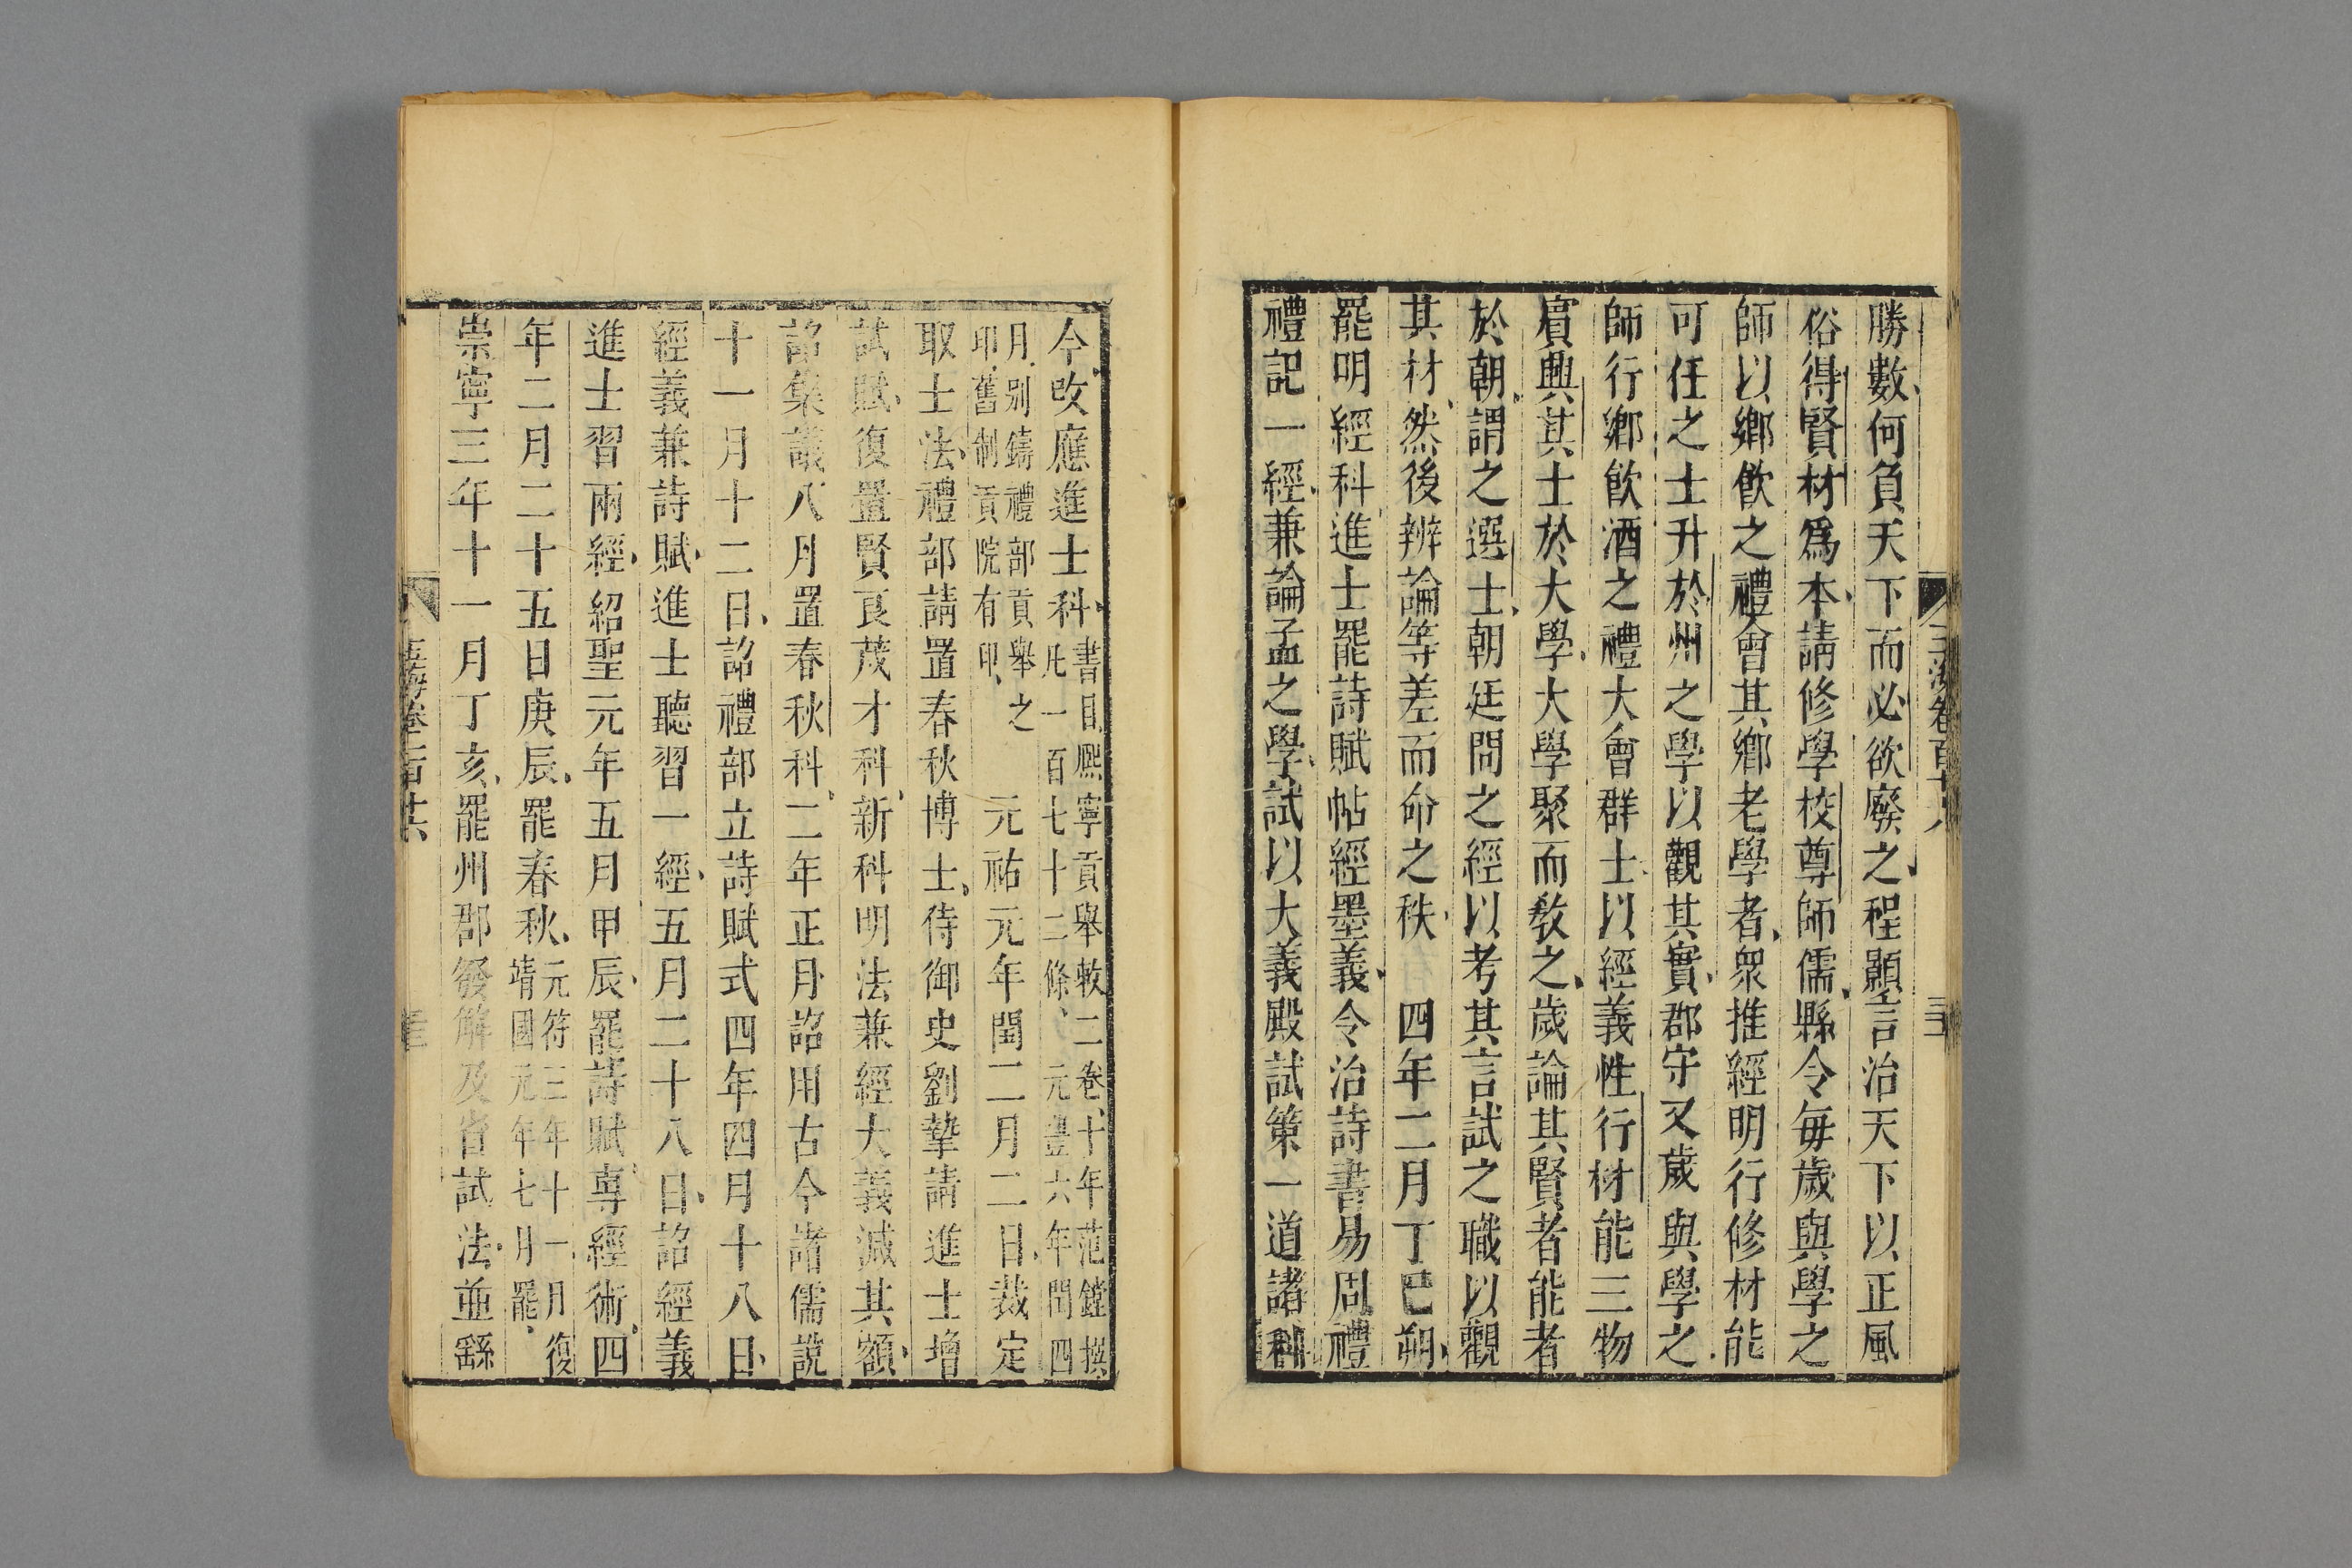 勝數何負天下而必欲廢之程顥言治天下以正風
俗得賢材爲本請修學校尊師儒縣令每歲與學之
師以鄉飲之禮會其鄉老學者衆推經明行修材能
可任之士升於州之學以觀其實郡守又歲與學之
師行鄉飲酒之禮大會群士以經義性行材能三物
賔興其士於大學大學聚而敎之歲論其賢者能者
於朝謂之選士朝廷問之經以考其言試之職以觀
其材然後辨論等差而命之秩 四年二月丁巳朔
罷明經科進士罷詩賦帖經墨義令治詩書易周禮
禮記一經兼論孟之學試以大義殿試策一道諸科
今改應進士科書目熈寧貢舉敕二卷十年范鏜撰
凡一百七十二條元豐六年閏四
月别鑄禮部貢舉之
印舊制貢院有印 元祐元年閏二月二日裁定
取士法禮部請置春秋博士侍御史劉摯請進士增
試賦復置賢良茂才科新科明法兼經大義減其額
詔集議八月置春秋科二年正月詔用古今諸儒說
十一月十二日詔禮部立詩賦式四年四月十八日
經義兼詩賦進士聽習一經五月二十八日詔經義
進士習兩經紹聖元年五月甲辰罷詩賦專經術四
年二月二十五日庚辰罷春秋元符三年十一月復
靖國元年七月罷
崇寧三年十一月丁亥罷州郡發解及省試法並繇